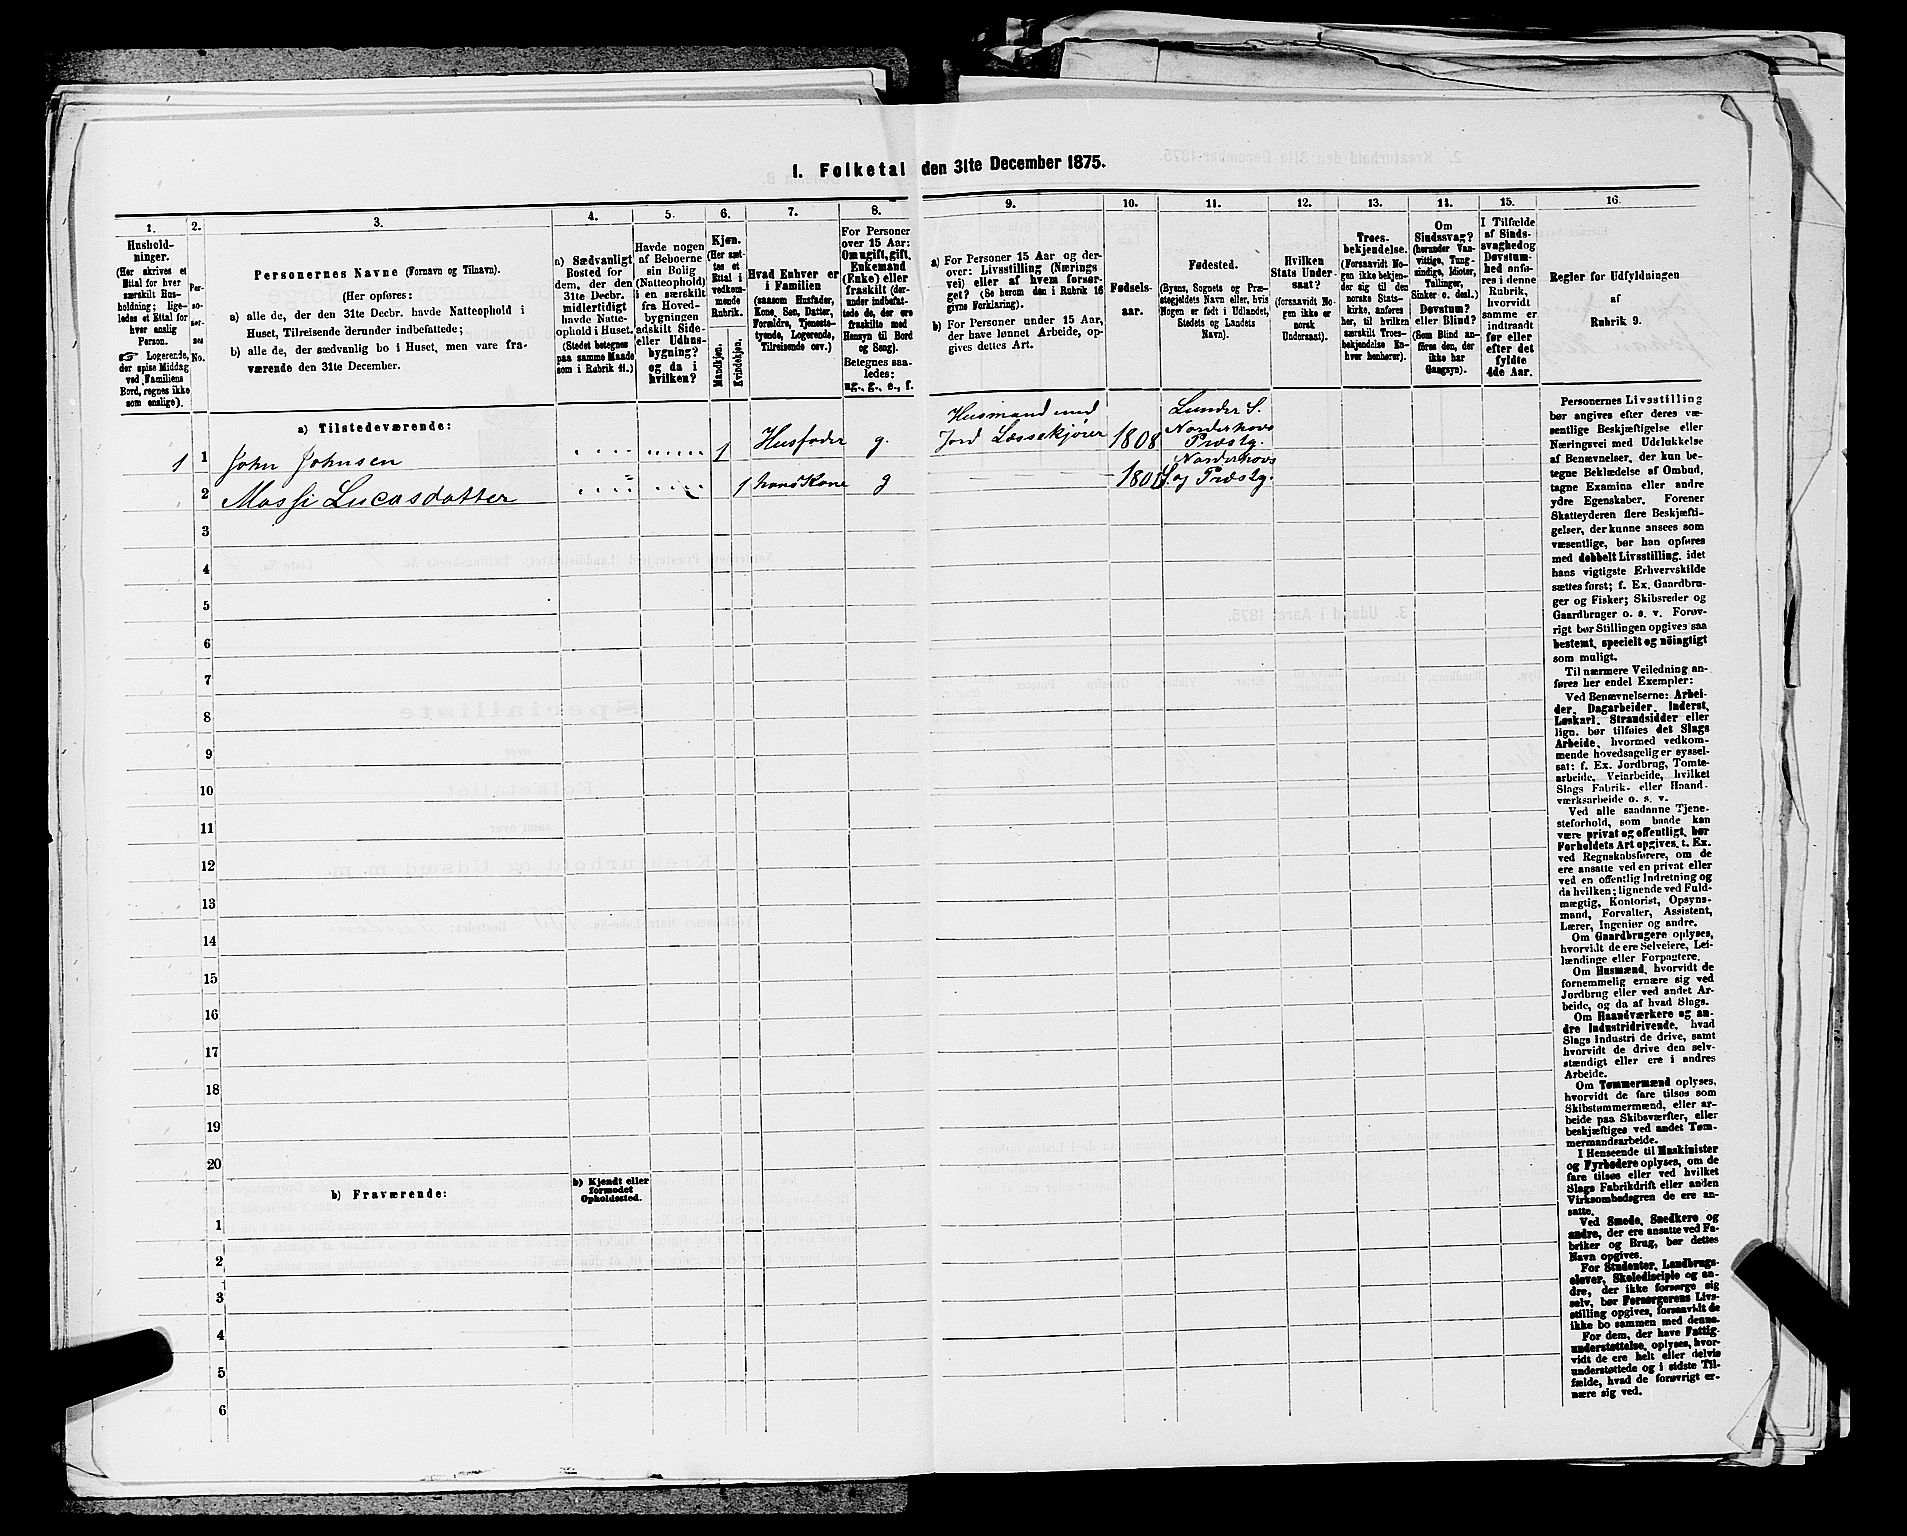 1. Folketal den 31te December 1875.
1.
2.
3.
4.
5.
6.
7.
8.
9.
10.
11.
12.
13.
14.
15.
16.
Hushold-
ninger.
(Her skrives et
Ettal for hver
særskilt Hus-
holdning; lige-
ledes et Ettal for
hver enslig
Person.
☞ Logerende,
der spise Middag
ved Familiens
Bord, regnes ikke
som enslige).
Per-
so-
ner-
nes
No.
Personernes Navne (Fornavn og Tilnavn).
(Her opføres:
a) alle de, der den 31te Decbr. havde Natteophold i
Huset, Tilreisende derunder indbefattede;
b) alle de, der sædvanlig bo i Huset, men vare fra-
værende den 31te December.
a) Sædvanligt
Bosted for
dem, der den
31te Decbr.
midlertidigt
havde Natte-
ophold i Huset.
(Stedet betegnes
paa samme Maade
som i Rubrik 11.)
Havde nogen
af Beboerne
sin Bolig
(Natteophold)
i en særskilt
fra Hoved-
bygningen
adskilt Side-
eller Udhus-
bygning?
og da i
hvilken?
Kjøn.
(Her sæt-
tes et
Ettal i
vedkom-
mende
Rubrik.
Mandkjøn.
Kvindekjøn.
Hvad Enhver er
i Familien
(saasom Husfader,
Kone, Søn, Datter,
Forældre, Tjeneste-
tyende, Logerende,
Tilreisende osv.)
For Personer
over 15 Aar:
Om ugift, gift,
Enkemand
(Enke) eller
fraskilt (der-
under indbefat-
tede de, der ere
fraskilte med
Hensyn til Bord
og Seng).
Betegnes saa-
ledes:
ug., g., e., f.
a) For Personer 15 Aar og der-
over: Livsstilling (Nærings
vei) eller af hvem forsør-
get? (Se herom den i Rubrik 16
givne Forklaring).
b) For Personer under 15 Aar,
der have lønnet Arbeide, op-
gives dettes Art.
Fødsels-
aar.
Fødested.
(Byens, Sognets og Præ-
stegjeldets Navn eller, hvis
Nogen er født i Udlandet,
Stedets og Landets
Navn).
Hvilken
Stats Under-
saat?
(forsaavidt No-
gen ikke er
norsk
Undersaat).
Troes-
bekjendelse.
(Forsaavidt No-
gen ikke bekjen-
der sig til den
norske Stats-
kirke, anføres
her, til hvilken
særskilt Troes-
bekjendelse En-
hver henhører).
Om
Sindssvag?
(herunder Van-
vittige, Tung-
sindige, Idioter,
Tullinger,
Sinker o. desl.)
Døvstum?
eller Blind?
(Som Blind an-
føres den, der
ikke har
Gangsyn).
I Tilfælde
af Sinds-
svaghed og
Døvstum-
hed anfø-
res i denne
Rubrik,
hvorvidt
samme er
indtraadt
før eller
efter det
fyldte
4de Aar.
Regler for Udfyldningen
af
Rubrik 9.
a) Tilstedeværende:
1 1 John Johnsen 1 Husfader g. Husmand med Jord Læssekjører 1808 Lunder S. Norderhovs Præstg.
2 Massi Lucasdatter 1 hans Kone g Norderhovs S. og Præstg.
3
4
5
6
7
8
9
10
11
12
13
14
15
16
17
18
19
20
b) Fraværende:
b) Kjendt eller
formodet
Opholdssted.
1
2
3
4
5
6
Personernes Livsstilling
bør angives efter deres væ-
sentlige Beskjæftigelse eller
Næringsvei med Udelukkelse
af Benævnelser, der kun be-
tegne Beklædelse af Ombud,
tagne Examina eller andre
ydre Egenskaber. Forener
Skatteyderen flere Beskjæfti-
gelser, der kunne ansees som
væsentlige, bør han opføres
med dobbelt Livsstilling, idet
hans vigtigste Erhvervskilde
sættes først; f. Ex. Gaardbru-
ger og Fisker; Skibsreder og
Gaardbruger o. s. v. Forøv-
rigt bør Stillingen opgives saa
bestemt, specielt og nöiagtigt
som muligt.
Til nærmere Veiledning an-
føres her endel Exempler:
Ved Benævnelserne: Arbei-
der, Dagarbeider, Inderst,
Løskarl, Strandsidder eller
lign. bør tilføies det Slags
Arbeide, hvormed vedkom-
mende hovedsagelig er syssel-
sat: f. Ex. Jordbrug, Tomte-
arbeide, Veiarbeide, hvilket
Slags Fabrik- eller Haand-
værksarbeide o. s. v.
Ved alle saadanne Tjene-
steforhold, som baade kan
være privat og offentligt, bør
Forholdets Art opgives. t. Ex.
ved Regnskabsførere, om de
ere ansatte ved en privat eller
ved en offentlig Indretning og
da hvilken; lignende ved Fuld-
mægtig, Kontorist, Opsyns-
mand, Forvalter, Assistent,
Lærer, Ingeniør og andre.
Om Gaardbrugere oplyses,
hvorvidt de ere Selveiere, Lei-
lændinge eller Forpagtere.
Om Husmænd, hvorvidt de
fornemmelig ernære sig ved
Jordbrug eller ved andet Ar-
beide, og da af hvad Slags.
Om Haandværkere og an-
dre Industridrivende, hvad
Slags Industri de drive, samt
hvorvidt de drive den selv-
stændigt eller ere i andres
Arbeide.
Om Tømmermænd oplyses,
hvorvidt de fare tilsøs som
Skibstømmermænd, eller ar-
beide paa Skibsværfter, eller
beskjæftiges ved andet Tøm-
mermandsarbeide.
I Henseende til Maskinister
og Fyrbødere oplyses, om de
fare tilsøs eller ved hvilket
Slags Fabrikdrift eller anden
Virksombedsgren de ere an-
satte.
Ved Smede, Snedkere og
andre, der ere ansatte ved Fa-
briker og Brug, bør dettes
Navn opgives.
For Studenter, Landbrugs-
elever, Skoledisciple og an-
dre, der ikke forsørge sig
selv, bør Forsørgerens Livs-
stilling opgives, forsaavidt de
ikke bo sammen med denne.
For dem, der have Fattig-
understøttelse, oplyses, hvor-
vidt de ere helt eller delvis
understøttede og i sidste Til-
fælde, hvad de forøvrigt er-
nære sig ved.